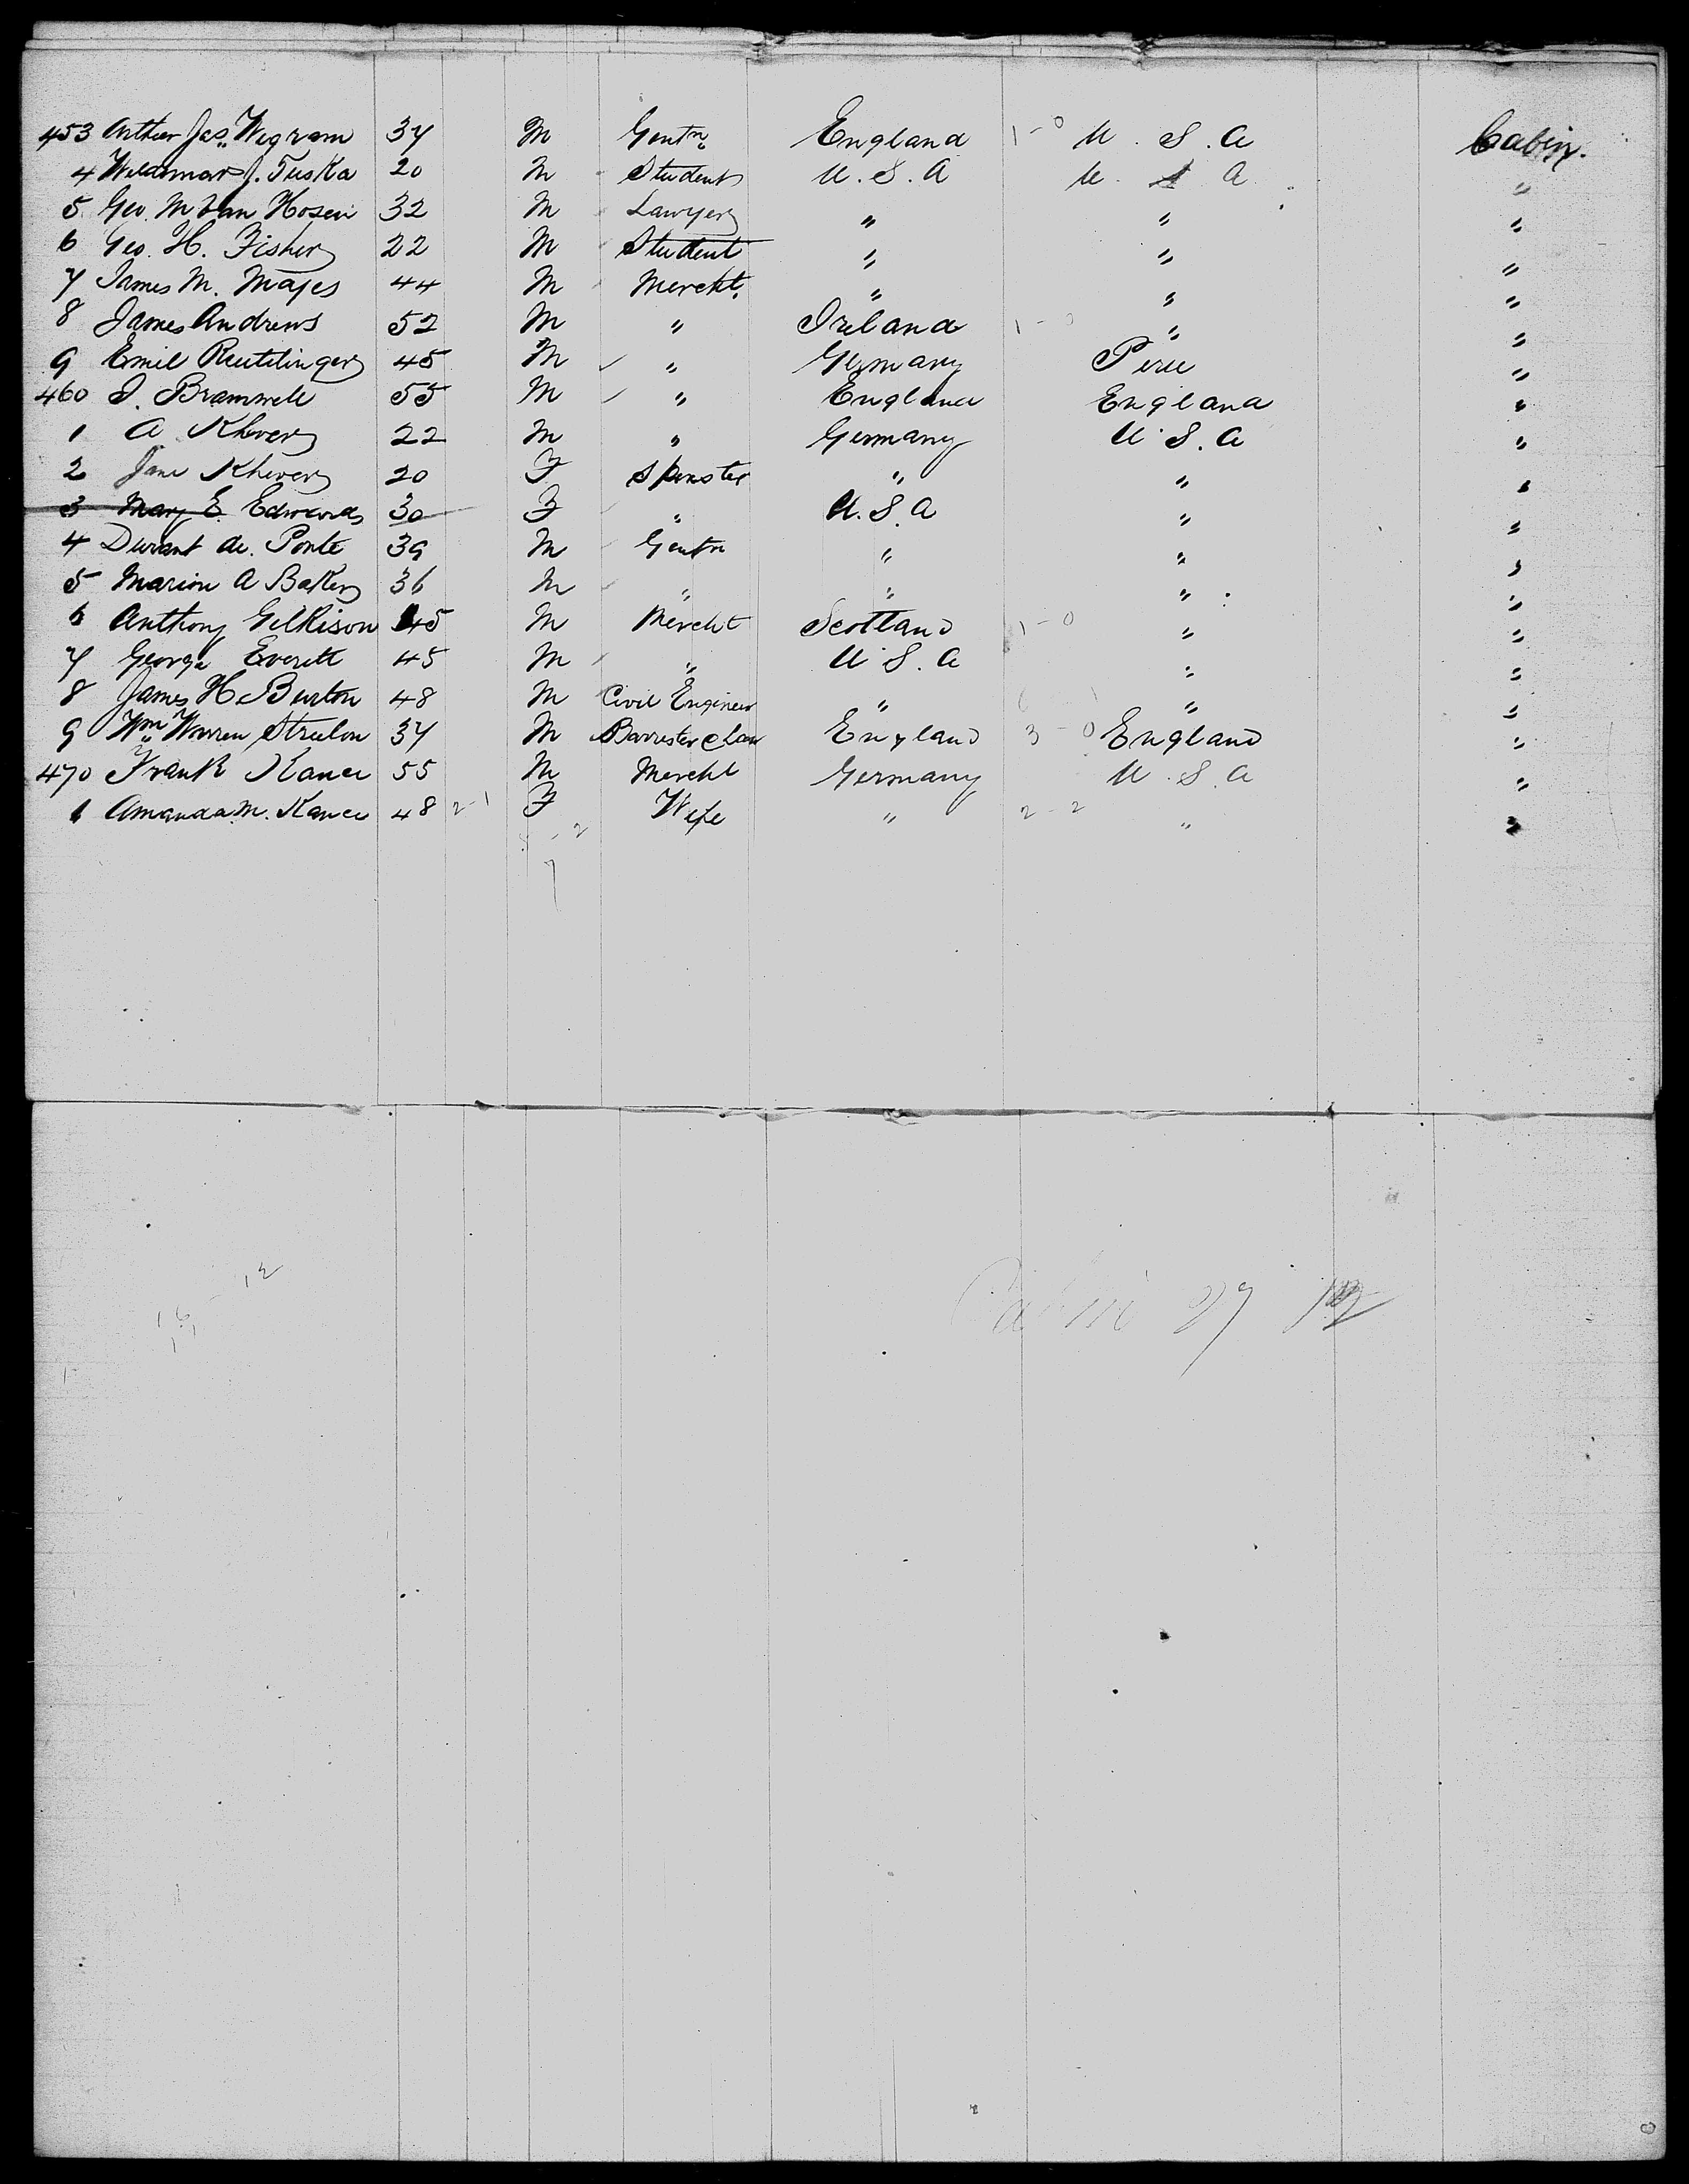 453 Arthur Jas. Wegram 37 M Gentn. England 1-0 U.S.A Cabin.
4 Waldemar J. Tuska 20 M Student U.S.A U.S.A "
5 Geo. M Van Hosen 32 M Lawyer " " "
6 Geo. H. Fisher 22 M Student " " "
7 James M. Mayes 44 M Mercht. " " "
8 James Andrews 52 M " Ireland 1-0 " "
9 Emil Reutlinger 45 M " Germany Peru "
460 J. Bramwell 55 M " England England "
1 A Khever 22 M " Germany U.S.A "
2 Jane Khever 20 F Spinster " " "
3 Mary E. Edwards 30 F " U.S.A " "
4 Durant de. Ponte 39 M Gentn " " "
5 Marion A Baker 36 M " " " "
6 Anthony Gilkison 45 M Mercht Scotland 1-0 " "
7 George Everett 45 M " U.S.A " "
8 James H Burton 48 M Civil Engineer " " "
9 Wm Warren 37 M Barrister England 3-0 England "
470 Frank Kance 55 M Mercht Germany U.S.A "
1 Amanda M. Kance 48 2-1 F Wife " 2-2 " "
Cabin 27